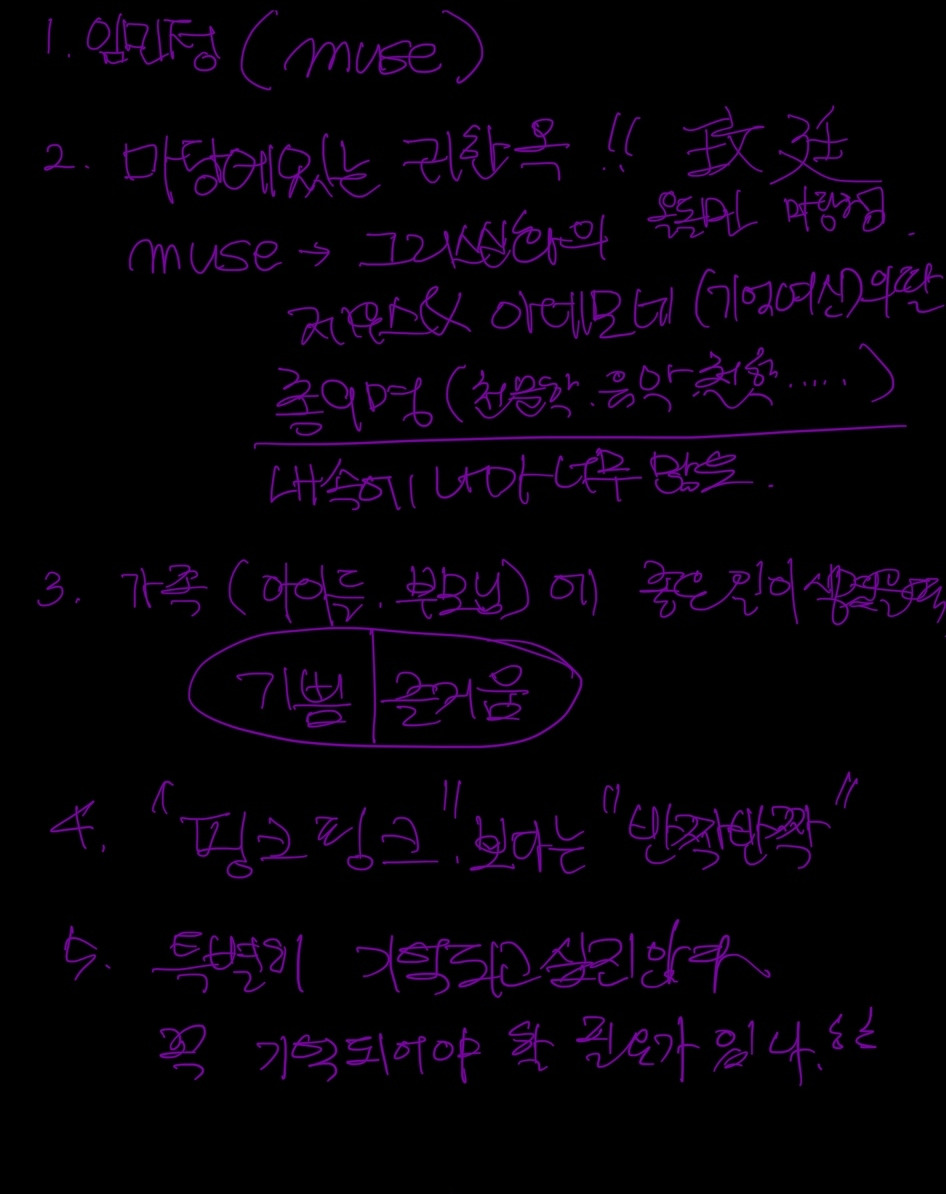 1. 임민정 (muse)
2. 마당에있는 귀한 옥 !!
옥돌민 마당정.
muse → 그리스신화의
제우스& (기억여신)의딸
중의명 (천문학. 음악 .....)
내속에 나마 너무 많음.
3. 가족 (아이들. 부모님)에 좋은 일이
기쁨 | 즐거움
4. "핑크핑크". 보다는 "반짝반짝"
5. 특별히 기억되고싶진않다
꼭 기억되어야 할 필요가 있나.